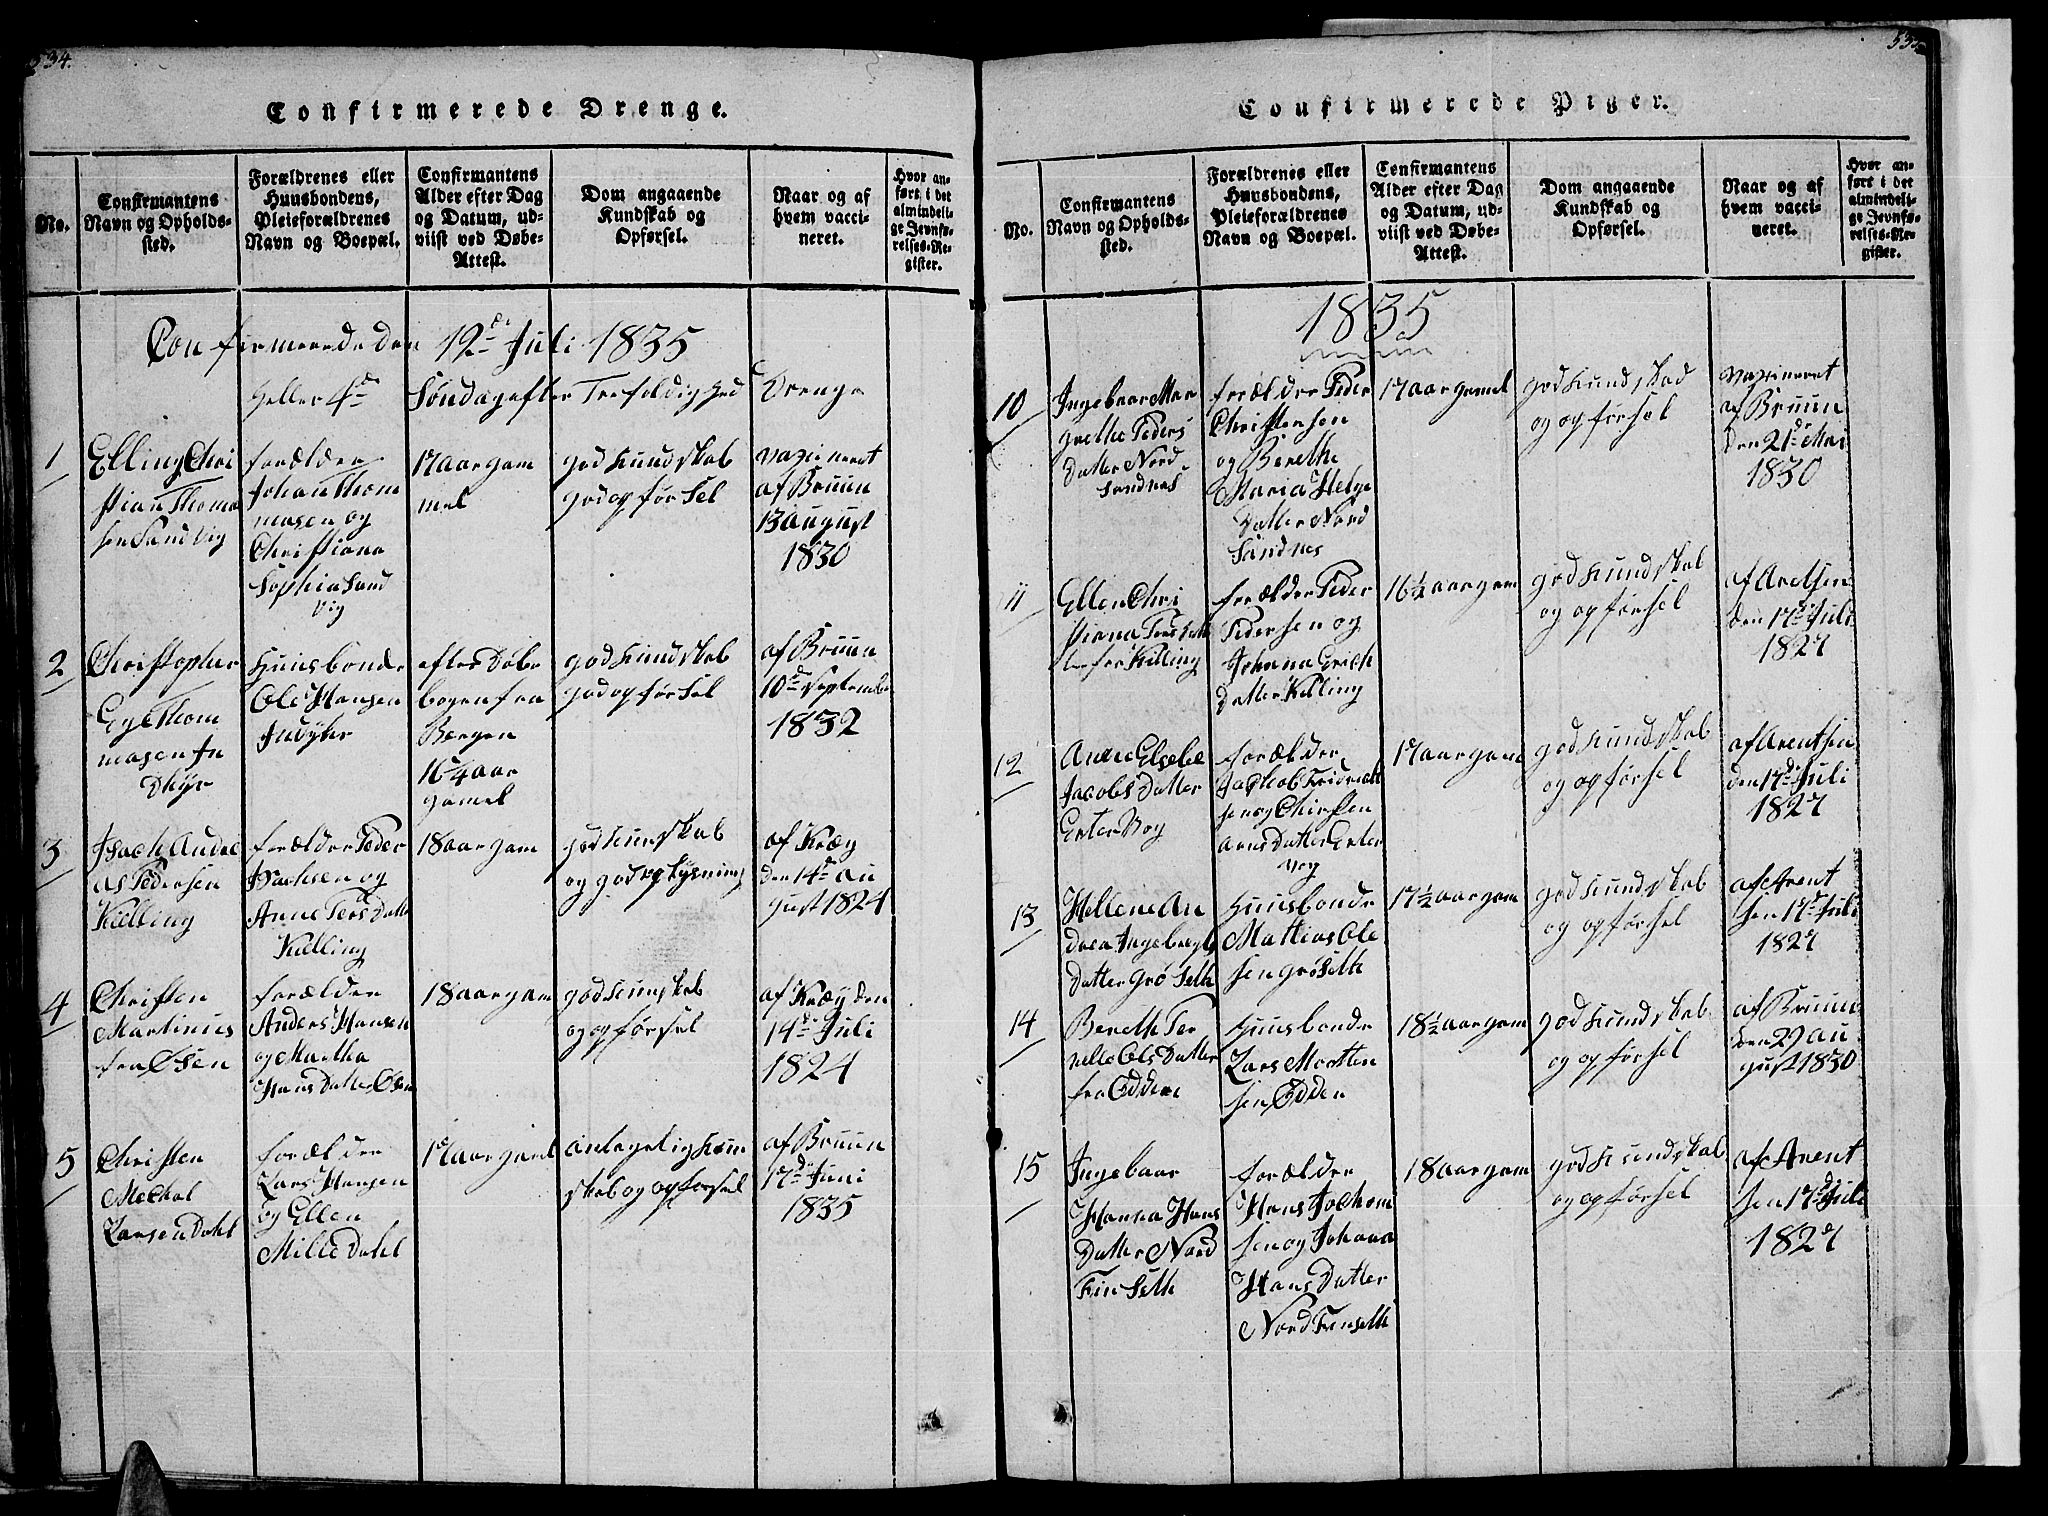 534.
Confirmerede Drenge.
No.
Confirmantens
Navn og Opholds-
sted.
Forældrenes eller
Huusbondens,
Pleieforældrenes
Navn og Boepæl.
Confirmantens
Alder efter Dag
og Datum, ud-
viist ved Døbe-
Attest.
Dom angaaende
Kundskab og
Opførsel.
Naar og af
hvem vacci-
neret.
Hvor an-
ført i det
almindeli-
ge Jevnfø-
relses-Re-
gister.
Confirmerede den 12de Juli 1835
Heller 4de Søndag efter Trefoldighed Drenge
1
Elling Chri
stian Thoma
sen Sandvig
forælder
Johan Thom
masen og
Christiana
Sophia Sand
vig
17 aar gam
mel
god Kundskab
god opførsel
vaxineret
af Bruun
13 august
1830
2
Christopher
Ege Thom
masen In
Dhyr
Huusbonde
Ole Hansen
Indyhr
efter Døbe
bogen fra
Bergen
16 1/4 aar
gamel
god Kundskab
god opførsel
af Bruun
10de September
1832
3
Isach Andre
as Pedersen
Kielling
forælder Peder
Isachsen og
Anne Pers Datter
Kielling
18 aar gam
god Kunskab
og god opkysning
af Kræy
den 14de Au
gust 1824
4
Christen
Martinus
fra Øsen
forælder
Anders Hansen
og Martha
Hans Datter Øsen
18 aar gam
god Kunskab
og opførsel
af Kræy den
14de Juli
1824
5
Christen
Mechal
Larsen Dahl
forælder
Lars Hansen
og Ellen
Mille Dahl
17 aar gamel
anlagelig Kom
skab og opførsel
af Bruun
17de Juni
1835
535
Confirmerede Piger.
No.
Confirmantens
Navn og Opholds-
sted.
Forældrenes eller
Huusbondens,
Pleieforældrenes
Navn og Boepæl.
Confirmantens
Alder efter Dag
og Datum, ud-
viist ved Døbe-
Attest.
Dom angaaende
Kundskab og
Opførsel.
Naar og af
hvem vacci-
neret.
Hvor an-
ført i det
almindeli-
ge Jevnfø-
relses-Re-
gister.
1835
10
Ingebaar Mar
grethe Peders
Datter Nord
Sandnes
forælder Peder
Christensen
og Berethe
Maria Helge
Datter Nord
Sandnes
17 aar gamel
god Kundskab
og opførsel
vaxineret
af Bruun
den 21de Mai
1830
11
Ellen Chri
stiana Pers Datt
er fra Kielling
forælder Peder
Pedersen og
Johanna Erich
Datter Kielling
16 1/2 aar gam
god Kundskab
og opførsel
af Aretsen
den 17de Juli
1827
12
Anne Elsebe
Jacobs Datter
Erter Vog
forælder
Jachob Fridrich
sen og Chirsten
Arns Datter Erter
vog
17 aar gam
god Kundskab
og opførsel
af Arentsen
den 17de Juli
1827
13
Hellene An
drea Ingebregts
Datter Grøseth
Huusbonde
Mathias Ole
sen Grøseth
17 1/2 aar gam
god Kundskab
og opførsel
af Arent
sen 17de Juli
1827
14
Bereth Per
nille Ols Datter
fra Edden
Huusbonde
Lars Morten
sen Ødden
18 1/2 aar gam
god Kundskab
og opførsel
af Bruun
den 29 au
gust 1830
15
Ingebaar
Hanna Hans
Datter Nord
Finseth
forælder
Hans Jochom
sen og Johana
Hans Datter
Nord Finseth
18 aar gam
god Kundskab
og opførsel
af Arent
sen 17de Juli
1827